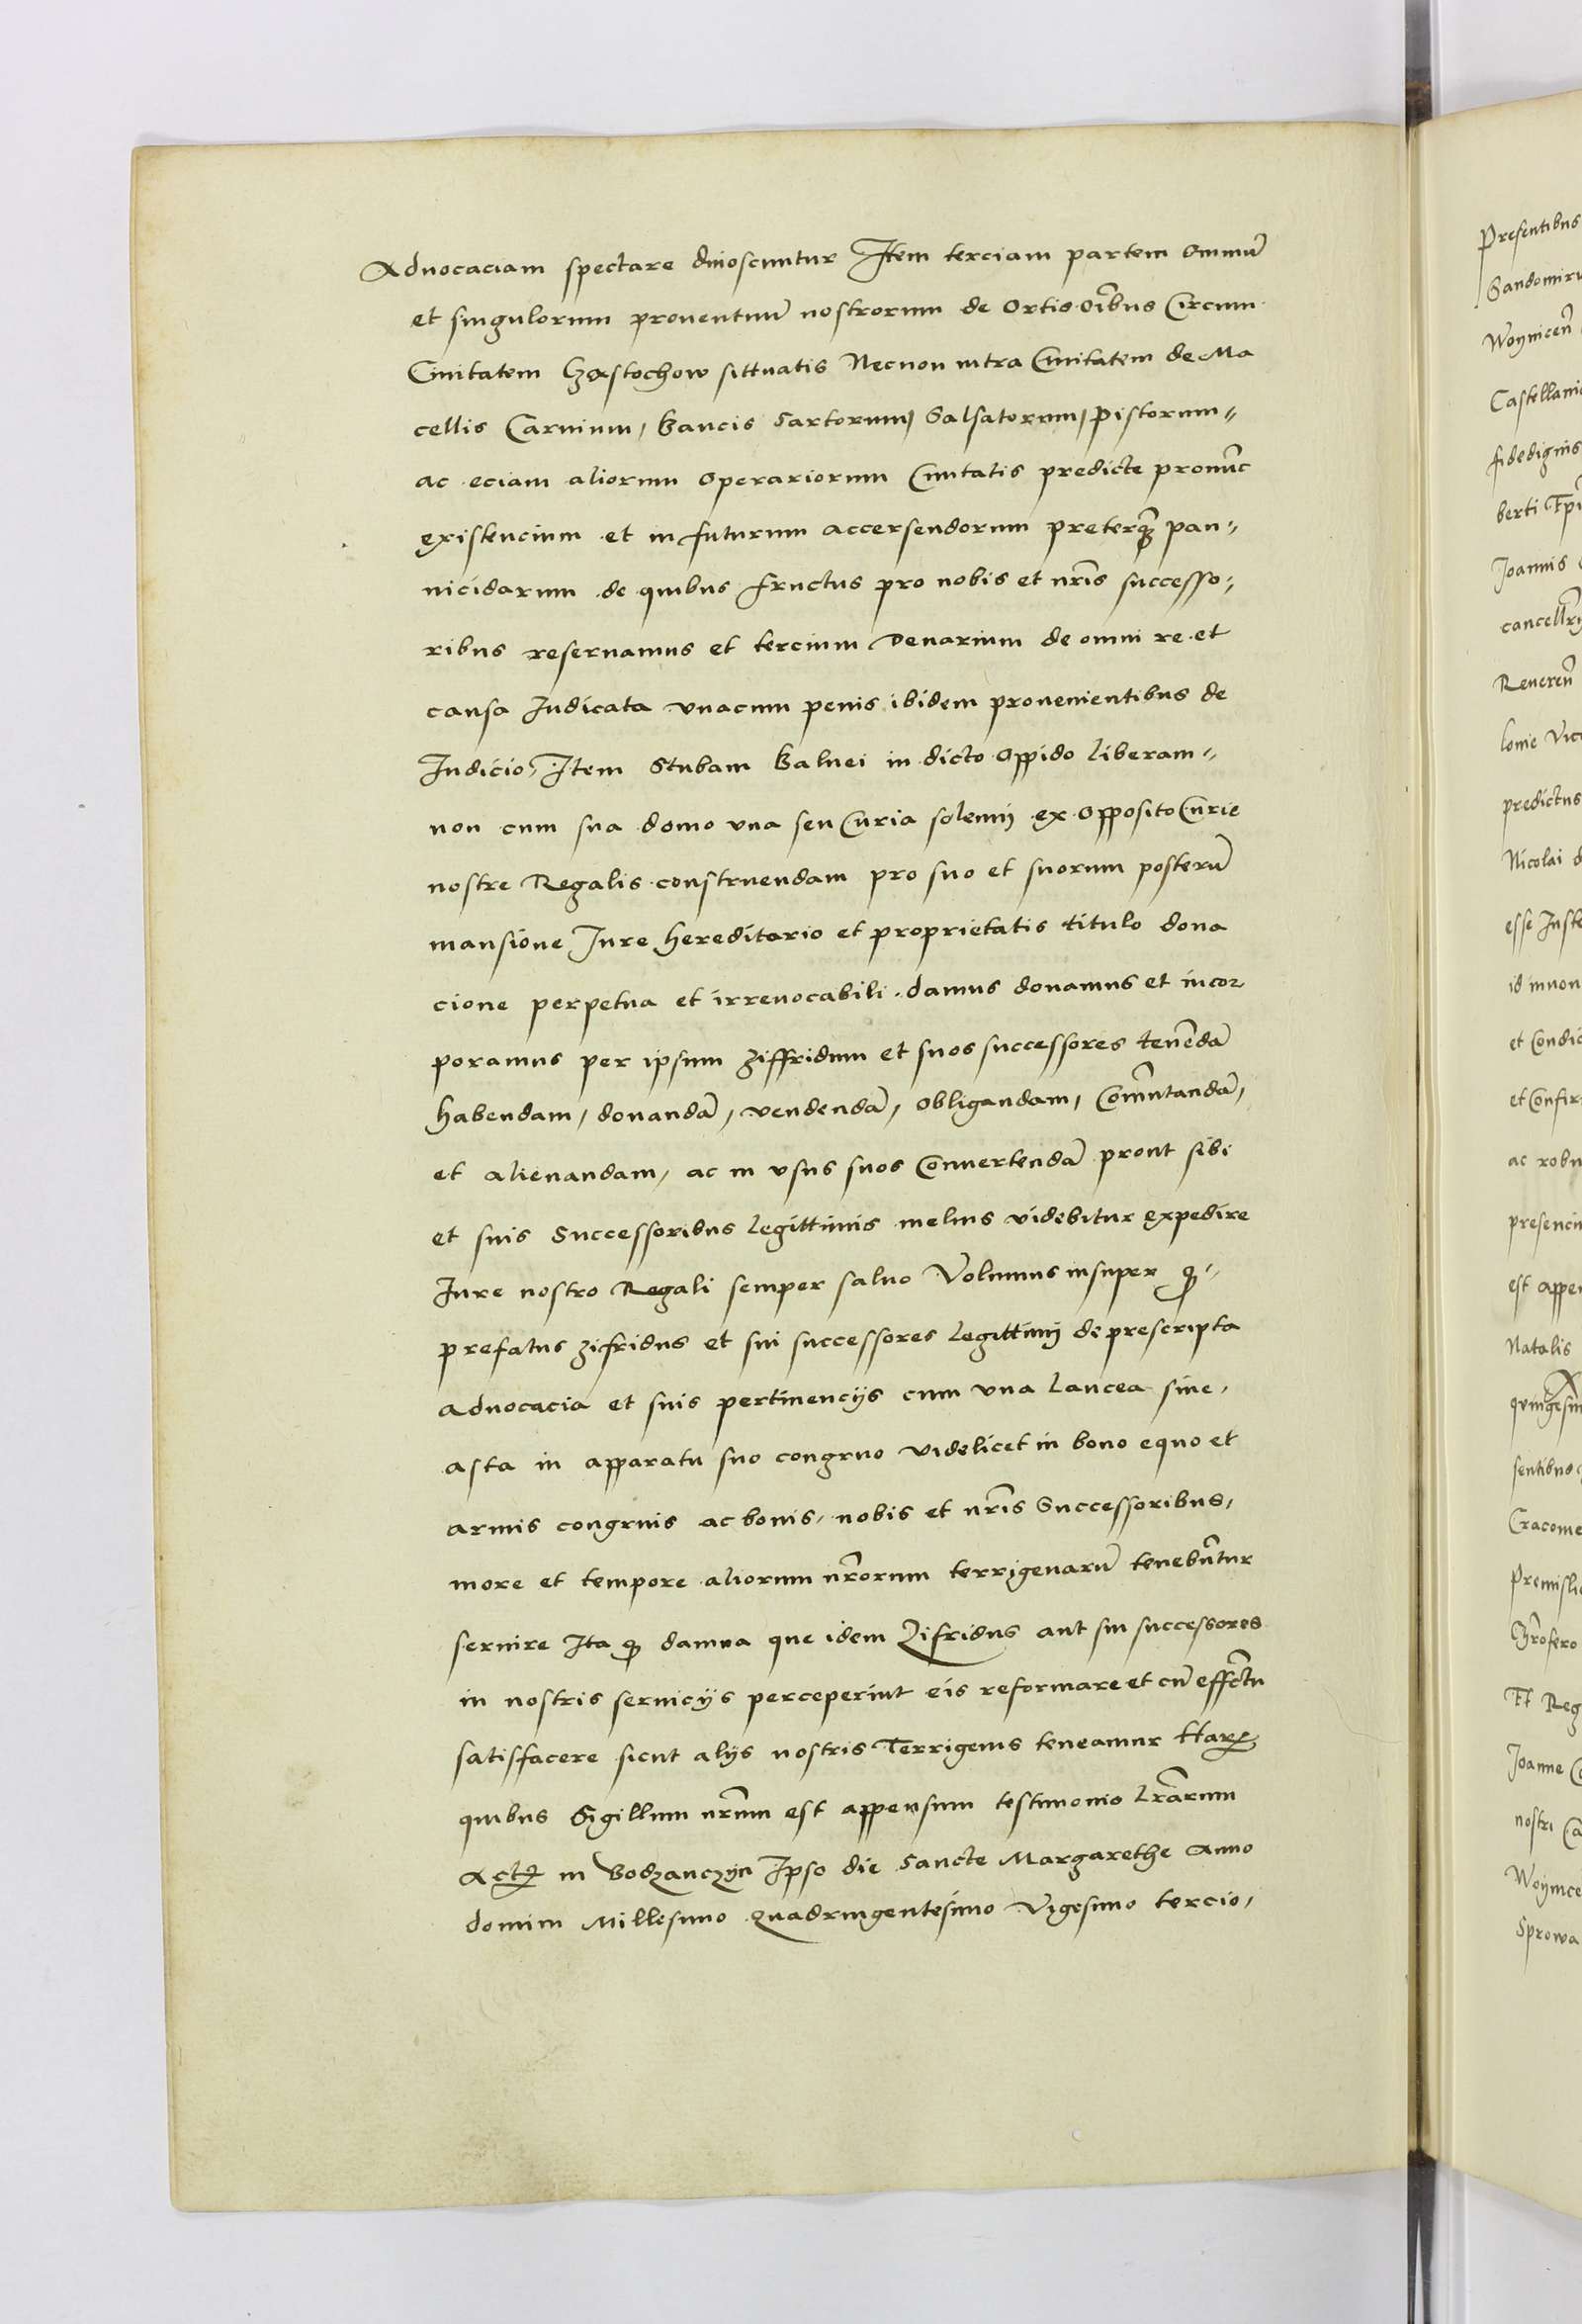 Aduocaciam spectare dinoscuntur Item terciam partem omniũ
et singulorum prouentuũ nostrorum de Ortis oĩbus Circum
Ciuitatem Czastochow sittuatis Necnon intra Ciuitatem de Ma
cellis Carnium, Bancis Sartorum, Salsatorum, Pistorum=
ac eciam aliorum Operariorum Ciuitatis predicte pronũc
existencium et in futurum accersendorum preterq̃ pan=
nicidarum de quibus fructus pro nobis et nr̃is successo=
ribus reseruamus et tercium Denarium de omni re et
causa Iudicata vnacum penis ibidem prouenientibus de
Iudicio, Item Stubam Balnei in dicto Oppido liberam=
non cum sua domo vna seu Curia solemnj ex Opposito Curie
nostre Regalis construendam pro suo et suorum posterũ
mansione Iure hereditario et proprietatis titulo dona
cione perpetua et irreuocabili damus donamus et incor
poramus per ipsum Ziffridum et suos successores tenẽdã
habendam, donandã, vendendã, obligandam, Com̃utandã,
et alienandam, ac in vsus suos Conuertendã prout sibi
et suis Successoribus legittimis melius videbitur expedire
Iure nostro Regali semper saluo Volumus insuper ꝙ=
prefatus Zifridus et sui successores legittimj de prescripta
aduocacia et suis pertinencijs cum vna lancea siue
asta in apparatu suo congruo videlicet in bono equo et
armis congruis ac bonis, nobis et nr̃is Successoribus,
more et tempore aliorum nr̃orum terrigenarũ tenebũtur
seruire Ita ꝙ damna que idem Zifridus aut sui successores
in nostris seruicijs perceperint eis reformare et cũ effc̃tu
satisfacere sicut alijs nostris Terrigenis teneamur Harꝝ
quibus Sigillum nr̃um est appensum testimonio lr̃arum
Actũ in Bodzanczyn Ipso die Sancte Margarethe Anno
domini Millesimo Quadringentesimo Vigesimo tercio,
Presentibus
Woynicen̄
fidedignis
Joannis
Reueren̄
predictus
Nicolai
et Confir
Natalis
Cracouie
Joanne
nostri
Sprowa